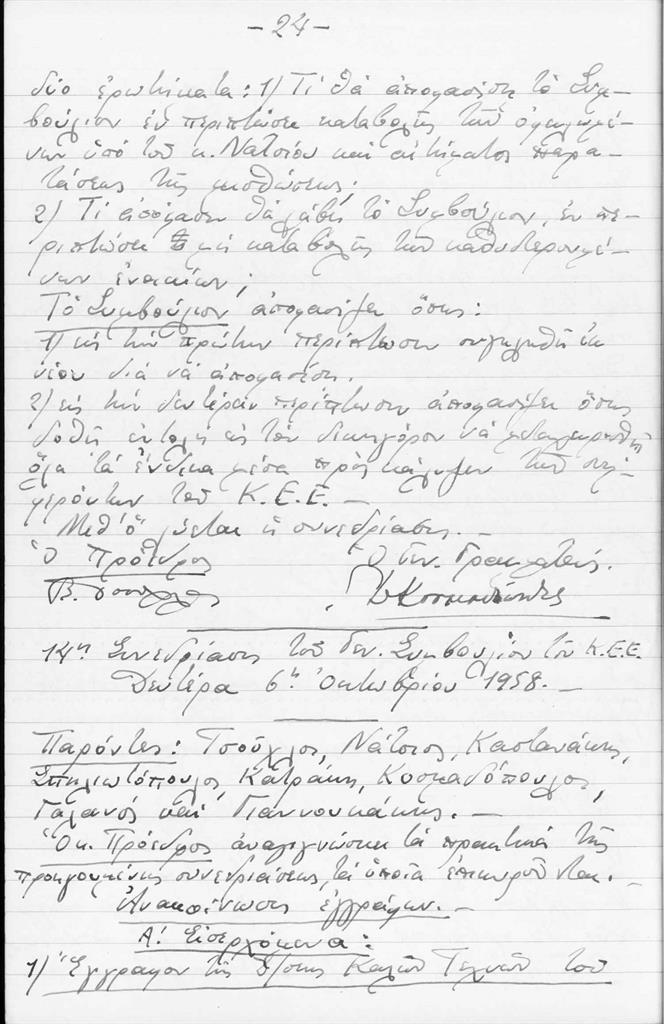 -24-
δύο ἐρωτήματα: 1) Τί θά ἀποφασίση τό Συμ-
βούλιον ἐν περιπτώσει καταβολῆς τῶν ὀφειλομέ-
νων ὑπό τοῦ κ. Νάτσιου καί αἰτήματος παρα-
τάσεως τῆς μισθώσεως;
2) Τί ἀπόφασιν θά λάβη τό Συμβούλιον, ἐν πε-
ριπτώσει μή καταβολῆς τῶν καθυστερουμέ-
νων ἐνοικίων;
Τό Συμβούλιον ἀποφασίζει ὅπως:
1) εἰς τήν πρώτην περίπτωσιν συγκληθῆ ἐκ
νέου διά νά ἀποφασίση.
2) εἰς τήν δευτέραν περίπτωσιν ἀποφασίζει ὅπως
δοθῆ ἐντολή εἰς τόν δικηγόρον νά μεταχειρισθῆ
ὅλα τά ἔνδικα μέσα πρός κάλυψιν τῶν συμ-
φερόντων τοῦ Κ.Ε.Ε. -
Μεθ' ὅ λύεται ἡ συνεδρίασις. -
Ὁ Πρόεδρος Ὁ Γεν. Γραμματεύς.
Β. Τσούχλος
14η Συνεδρίασις τοῦ Γεν. Συμβουλίου τοῦ Κ.Ε.Ε.
Δευτέρα 6η Ὀκτωβρίου 1958. -
Παρόντες: Τσούχλος, Νάτσιος, Καστανάκης,
Σπηλιωτόπουλος, Κατράκης, Κοσμαδόπουλος,
Γαλανός καί Γιαννουκάκης. -
Ὁ κ. Πρόεδρος ἀναγιγνώσκει τά πρακτικά τῆς
προηγουμένης συνεδριάσεως, τά ὁποῖα ἐπικυροῦνται. -
Ἀνακοίνωσις ἐγγράφων. -
Α! Εἰσερχόμενα:
1) Ἔγγραφον τῆς Δ/σης Καλῶν Τεχνῶν τοῦ